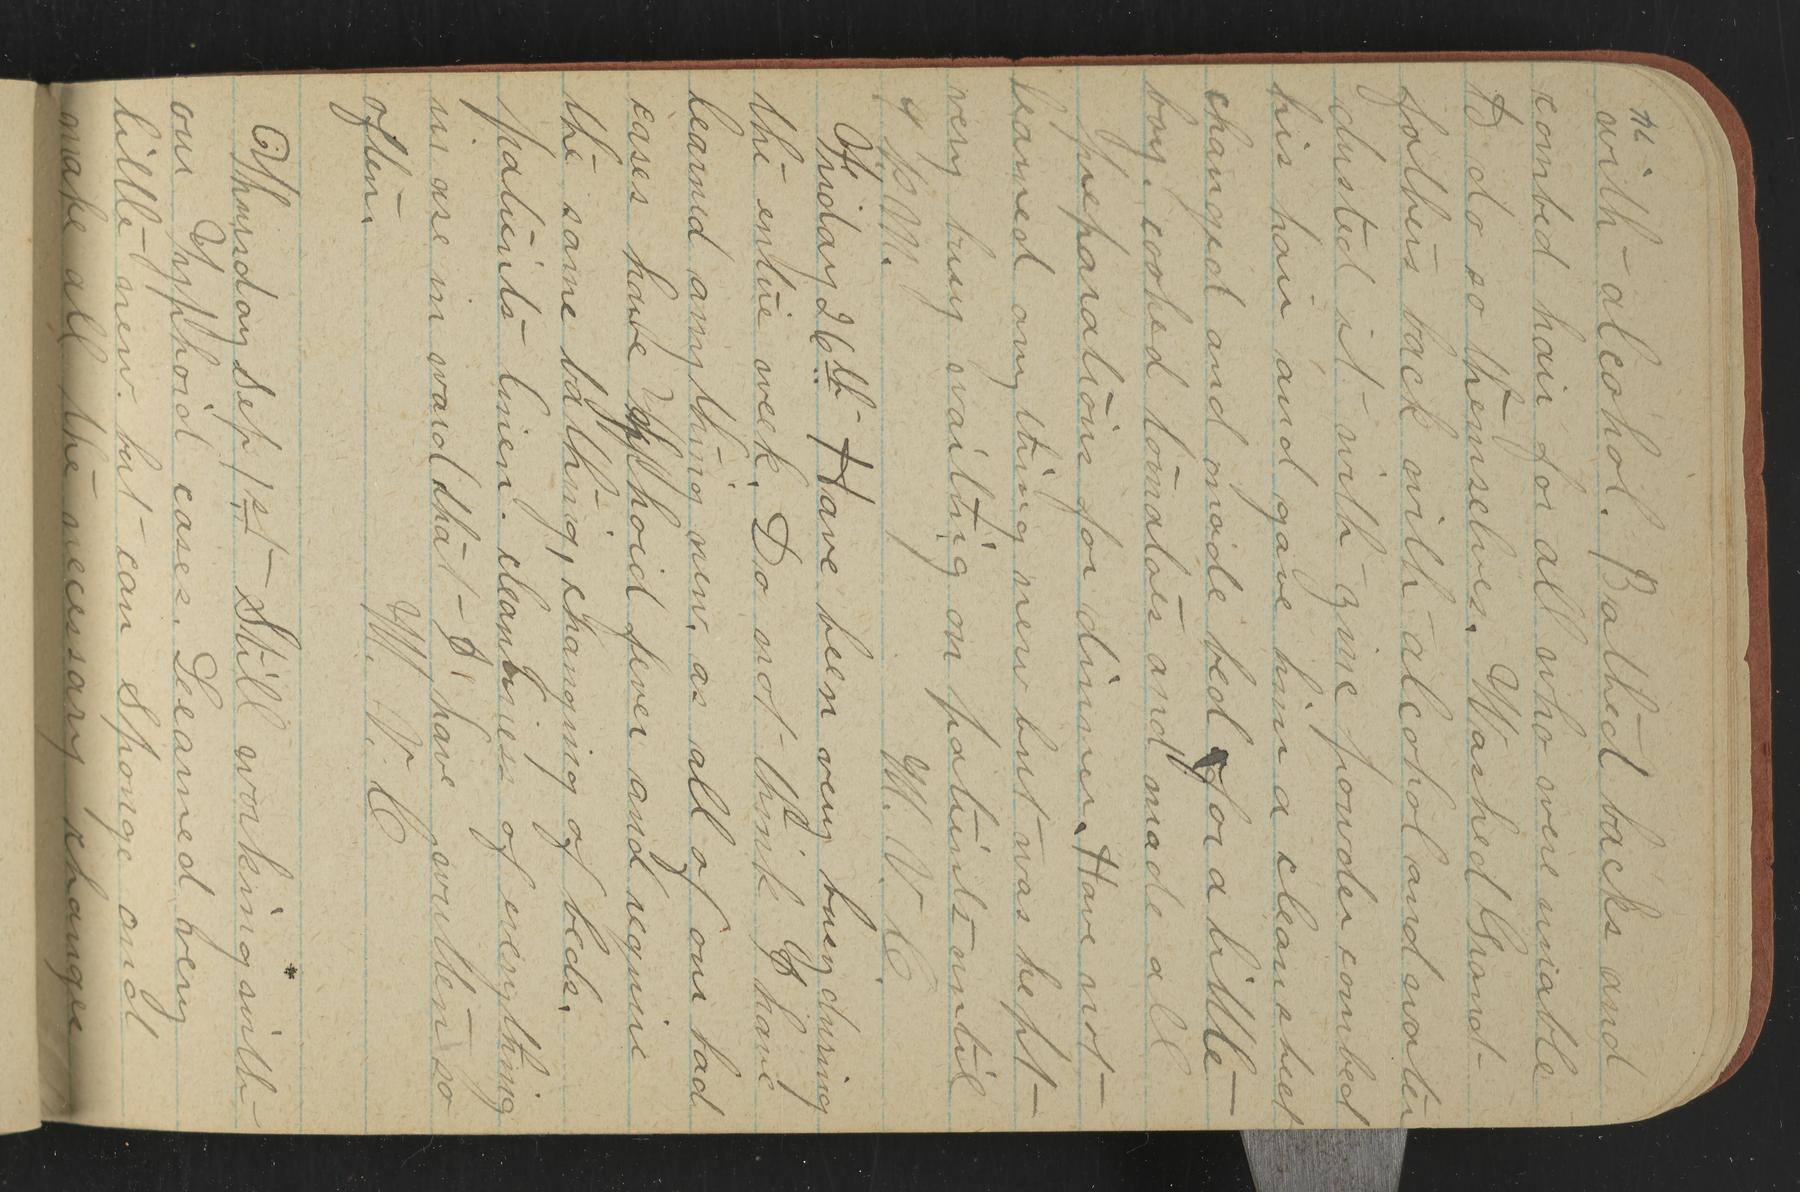 with alcohol. Bathed backs and
combed hair for all who were unable
to do so themselves. Washed Grand-
fathers back with alcohol and water
dusted it with zinc powder combed
his hair and gave him a clean sheet
changed and made bed for a little
boy. cooked tomatoes and made all
preparations for dinner. Have not
learned any thing new but was kept
very busy waiting on patients until
4 P.M. M. V. C.
Friday 26th Have been very busy during
the entire week. Do not think I have
learned any thing new. as all of our bad
cases have typhoid fever and require
the same bathing, changing of beds.
patients linen. cleanliness of everything
in use in ward that I have written so
often.
M. V. C
Thursday Sep 1st Still working with
our Typhoid cases. Learned very
little new. but can sponge and
make all the necessary changes